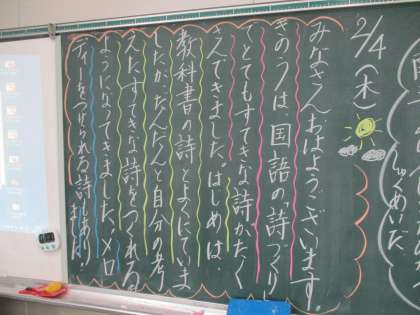 2/4(木)
みなさんおはようございます。
きのうは、国語の「詩づくり」
でとてもすてきな詩がたく
さんできました。はじめは、
教科書の詩とよくにていま
したが、だんだんと自分の考
えたすてきな詩をつくれる
ようになってきました。メロ
ディーをつけられる詩もあり
ました。